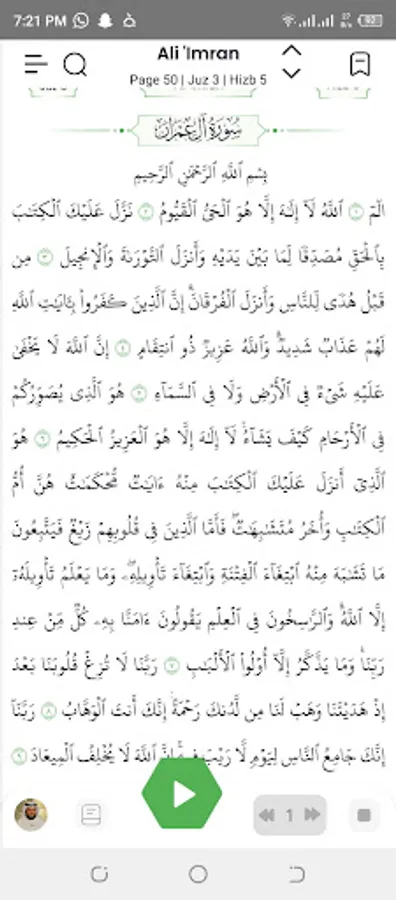 7:21 PM
92
Ali 'Imran
Page 50 | Juz 3 | Hizb 5
سُورَةُ آلِ عِمۡرَانَ
بِسۡمِ ٱللَّهِ ٱلرَّحۡمَٰنِ ٱلرَّحِيمِ
الٓمٓ ١ ٱللَّهُ لَآ إِلَٰهَ إِلَّا هُوَ ٱلۡحَيُّ ٱلۡقَيُّومُ ٢ نَزَّلَ عَلَيۡكَ ٱلۡكِتَٰبَ
بِٱلۡحَقِّ مُصَدِّقٗا لِّمَا بَيۡنَ يَدَيۡهِ وَأَنزَلَ ٱلتَّوۡرَىٰةَ وَٱلۡإِنجِيلَ ٣ مِن
قَبۡلُ هُدٗى لِّلنَّاسِ وَأَنزَلَ ٱلۡفُرۡقَانَۗ إِنَّ ٱلَّذِينَ كَفَرُواْ بِـَٔايَٰتِ ٱللَّهِ
لَهُمۡ عَذَابٞ شَدِيدٞۗ وَٱللَّهُ عَزِيزٞ ذُو ٱنتِقَامٍ ٤ إِنَّ ٱللَّهَ لَا يَخۡفَىٰ
عَلَيۡهِ شَيۡءٞ فِي ٱلۡأَرۡضِ وَلَا فِي ٱلسَّمَآءِ ٥ هُوَ ٱلَّذِي يُصَوِّرُكُمۡ
فِي ٱلۡأَرۡحَامِ كَيۡفَ يَشَآءُۚ لَآ إِلَٰهَ إِلَّا هُوَ ٱلۡعَزِيزُ ٱلۡحَكِيمُ ٦ هُوَ
ٱلَّذِيٓ أَنزَلَ عَلَيۡكَ ٱلۡكِتَٰبَ مِنۡهُ ءَايَٰتٞ مُّحۡكَمَٰتٌ هُنَّ أُمُّ
ٱلۡكِتَٰبِ وَأُخَرُ مُتَشَٰبِهَٰتٞۖ فَأَمَّا ٱلَّذِينَ فِي قُلُوبِهِمۡ زَيۡغٞ فَيَتَّبِعُونَ
مَا تَشَٰبَهَ مِنۡهُ ٱبۡتِغَآءَ ٱلۡفِتۡنَةِ وَٱبۡتِغَآءَ تَأۡوِيلِهِۦۖ وَمَا يَعۡلَمُ تَأۡوِيلَهُۥٓ
إِلَّا ٱللَّهُۗ وَٱلرَّٰسِخُونَ فِي ٱلۡعِلۡمِ يَقُولُونَ ءَامَنَّا بِهِۦ كُلّٞ مِّنۡ عِندِ
رَبِّنَاۗ وَمَا يَذَّكَّرُ إِلَّآ أُوْلُواْ ٱلۡأَلۡبَٰبِ ٧ رَبَّنَا لَا تُزِغۡ قُلُوبَنَا بَعۡدَ
إِذۡ هَدَيۡتَنَا وَهَبۡ لَنَا مِن لَّدُنكَ رَحۡمَةًۚ إِنَّكَ أَنتَ ٱلۡوَهَّابُ ٨ رَبَّنَآ
إِنَّكَ جَامِعُ ٱلنَّاسِ لِيَوۡمٖ لَّا رَيۡبَ فِيهِۚ إِنَّ ٱللَّهَ لَا يُخۡلِفُ ٱلۡمِيعَادَ ٩
1